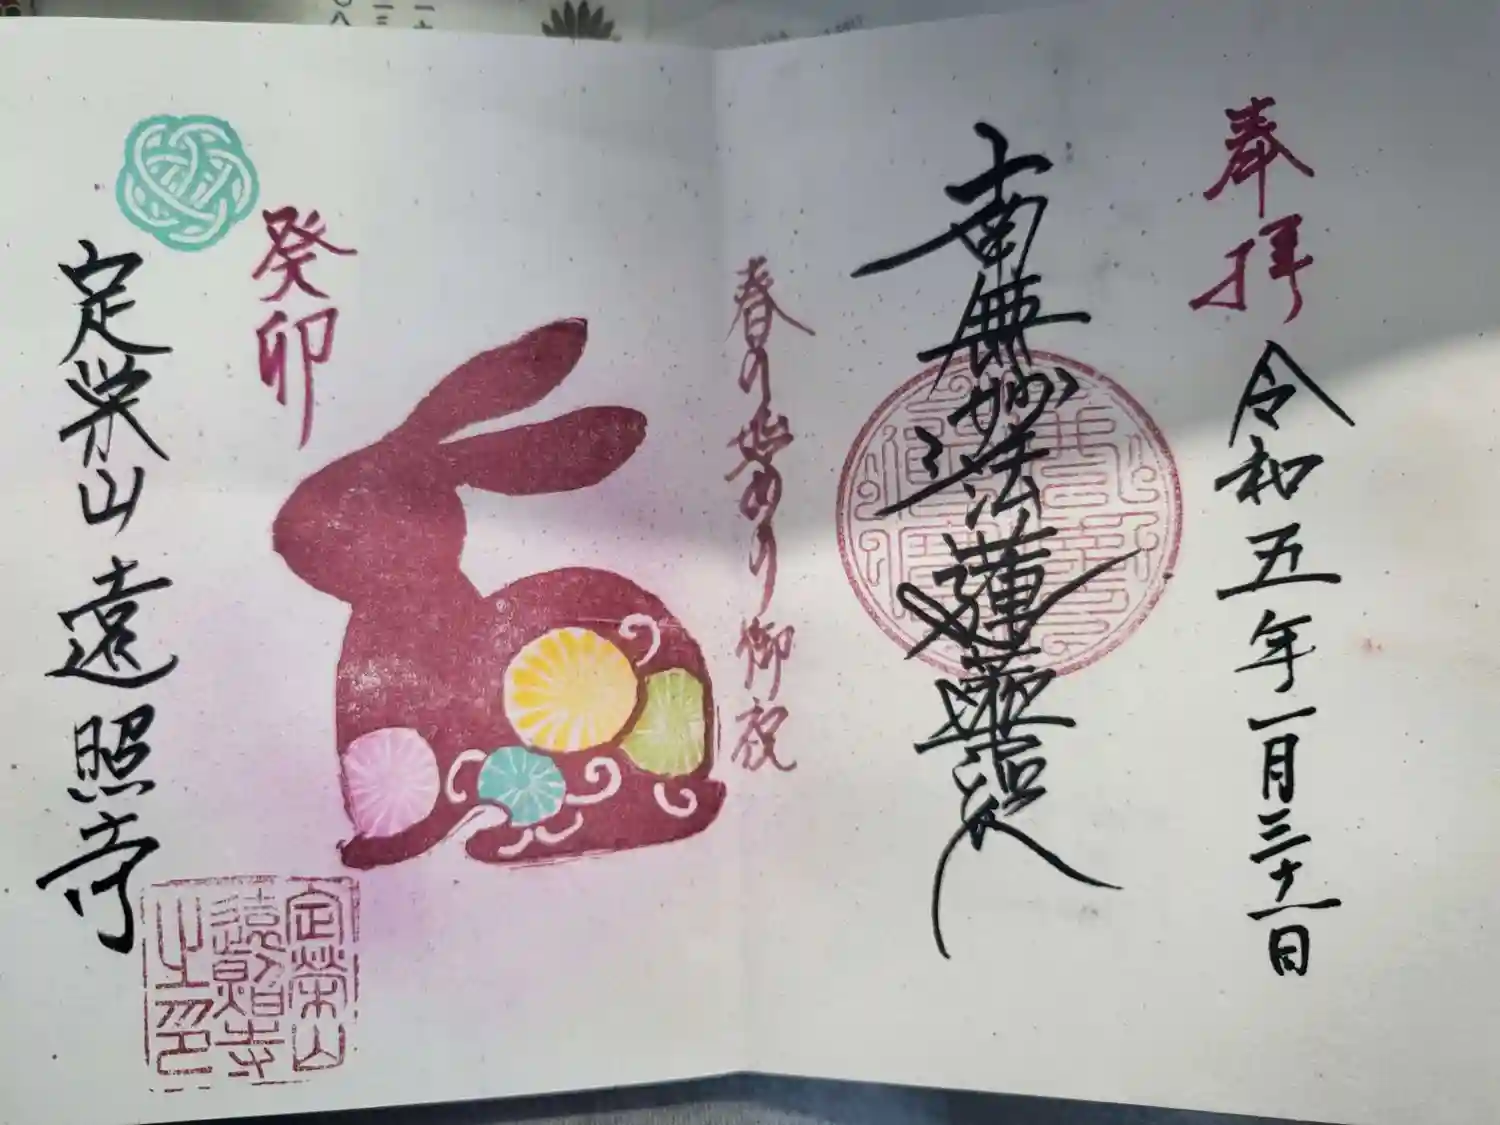 奉拝
令和五年一月三十一日
南無妙法蓮華経
春の始めの御祝
癸卯
定栄山 遠照寺
定榮山
遠照寺
之印